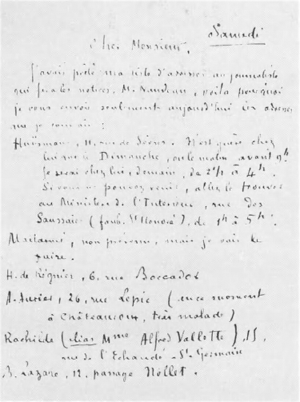 Samedi
Cher Monsieur,
J'avais prêté ma liste d'adresses au journaliste
qui fait les notices, M. Naudeau, voilà pourquoi
je vous envoie seulement aujourd'hui les adresses
que je connais :
Huysmans, 11, rue de Sèvres. N'est guère chez
lui que le Dimanche, ou le matin avant 9h.
Je serai chez lui, demain, de 2h à 4h.
Si vous ne pouvez venir, allez le trouver
au Ministère de l'Intérieur, rue des
Saussaies (faub. St Honoré), de 1h à 5h.
Mallarmé, non prévenu, mais je vais le
faire.
H. de Régnier, 6, rue Boccador
A. Aurier, 26, rue Lepic (en ce moment
à Châteauroux, très malade)
Rachilde (alias Mme Alfred Vallette), 15,
rue de l'Echaudé-St-Germain
B. Lazare, 12, passage Nollet.